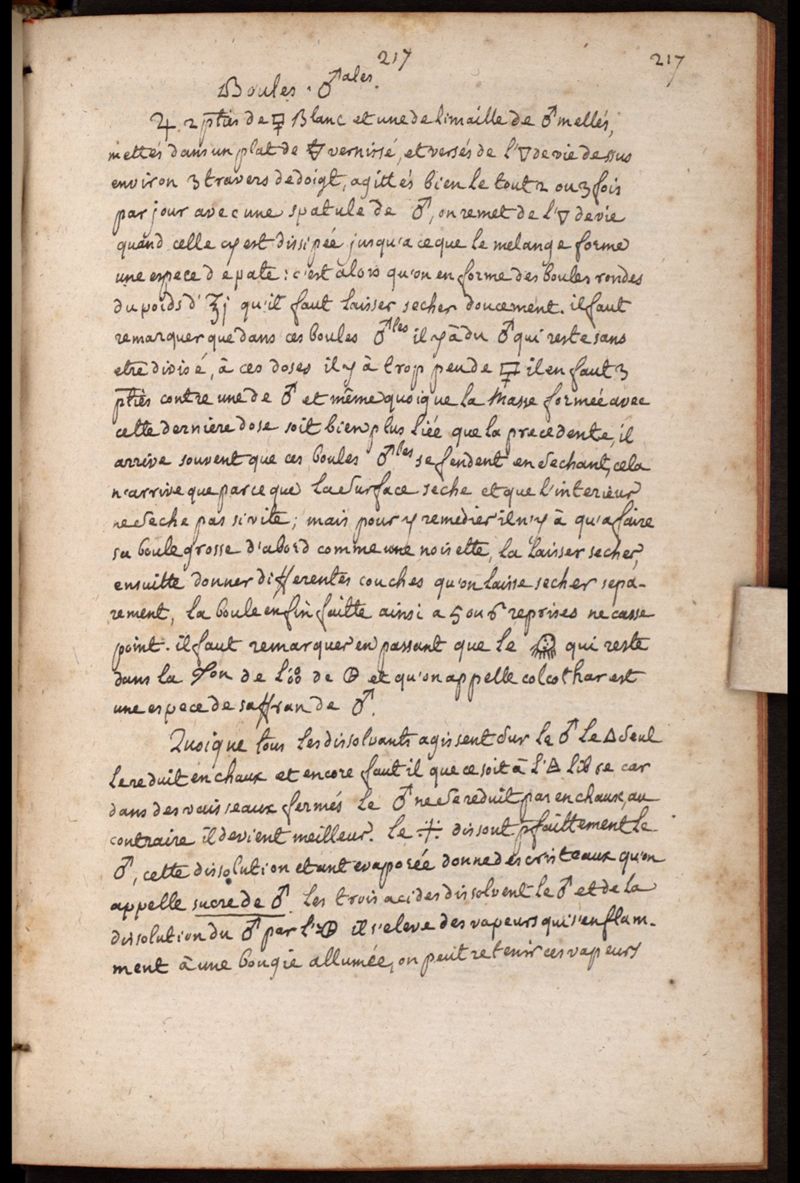 217
217
Boules ♂ales.
♃ 2 pties de 🜿 Blanc et une de limaille de ♂ mellés,
mettés dans un plat de 🜃 vernissé, et versés de l'🜄 de vie dessus
environ 3 travers de doigt, agittés bien le tout 2 ou 3 fois
par jour avec une spatule de ♂, on remet de l'🜄 de vie
quand celle cy est dissipée jusqu'a ce que le melange forme
une espece de pate : c'est alors qu'on en forme des boules rondes
du poids d'℥j qu'il faut laisser secher doucement. il faut
remarquer que dans ces boules ♂les il y à du ♂ qui reste sans
etre divisé, à ces doses il y à trop peu de 🜿 il en faut 3
pties contre une de ♂ et même quoique la Masse formée avec
cette derniere dose soit bien plus liée que la precedente, il
arrive souvent que ces boules ♂les se fendent en sechant, cela
n'arrive que parce que la surface seche et que l'interieur
ne seche pas si vite ; mais pour y remedier il n'y à qu'a faire
sa boule grosse d'abord comme une noisette, la laisser secher,
ensuitte donner differentes couches qu'on laisse secher sepa-
rement, la boule enfin faitte ainsi a 5 ou 6 reprises ne casse
point. il faut remarquer en passant que le 💀 qui reste
dans la Don de l'🜆 de 🜖 et qu'on appelle colcothar est
une espece de saffran de ♂.
Quoique tous les dissolvants agissent sur le ♂ le 🜂 seul
le reduit en chaux et encore faut il que ce soit à l'🜁 libre car
dans des vaisseaux fermés le ♂ ne se reduit pas en chaux, au
contraire il devient meilleur. Le 🜊 dissout pfaittement le
♂, cette dissolution etant evaporée donne des cristeaux qu'on
appelle sucre de ♂. Les trois acides dissolvent le ♂ et de la
dissolution du ♂ par l'🜖 il s'eleve des vapeurs qui s'enflam-
ment à une bougie allumée, on peut retenir ces vapeurs